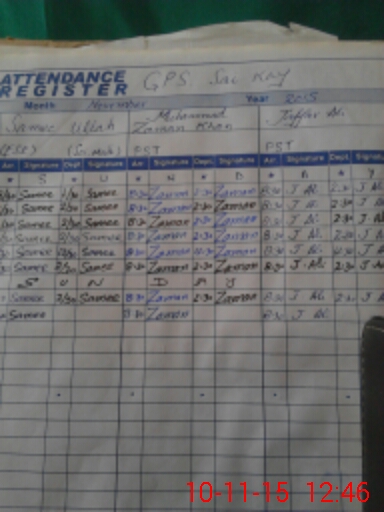 ATTENDANCE GPS
REGISTER
Month November Year 2015
Samee Ullah Muhammad Jaffar Ali
Zaman Khan
PST PST
Arr Signature Dept Signature Arr Signature Dept Signature Arr Signature Dept Signature
S U N D A Y
Samee 2/30 Samee 8:30 Zaman 2:30 Zaman 8:30 J Ali 2:30 J Ali
Samee 2/30 Samee 8:30 Zaman 2:30 Zaman 8:30 J Ali 2:30 J Ali
Samee 2/30 Samee 8:30 Zaman 2:30 Zaman 8:30 J Ali 2:30 J Ali
Samee 2/30 Samee 8:30 Zaman 2:30 Zaman 8:30 J Ali 2:30 J Ali
Samee 2/30 Samee 8:30 Zaman 2:30 Zaman 8:30 J Ali 2:30 J Ali
S U N D A Y
Samee 2/30 Samee 8:30 Zaman 2:30 Zaman 8:30 J Ali 2:30 J Ali
Samee 8:30 Zaman 8:30 J Ali
10-11-15 12:46